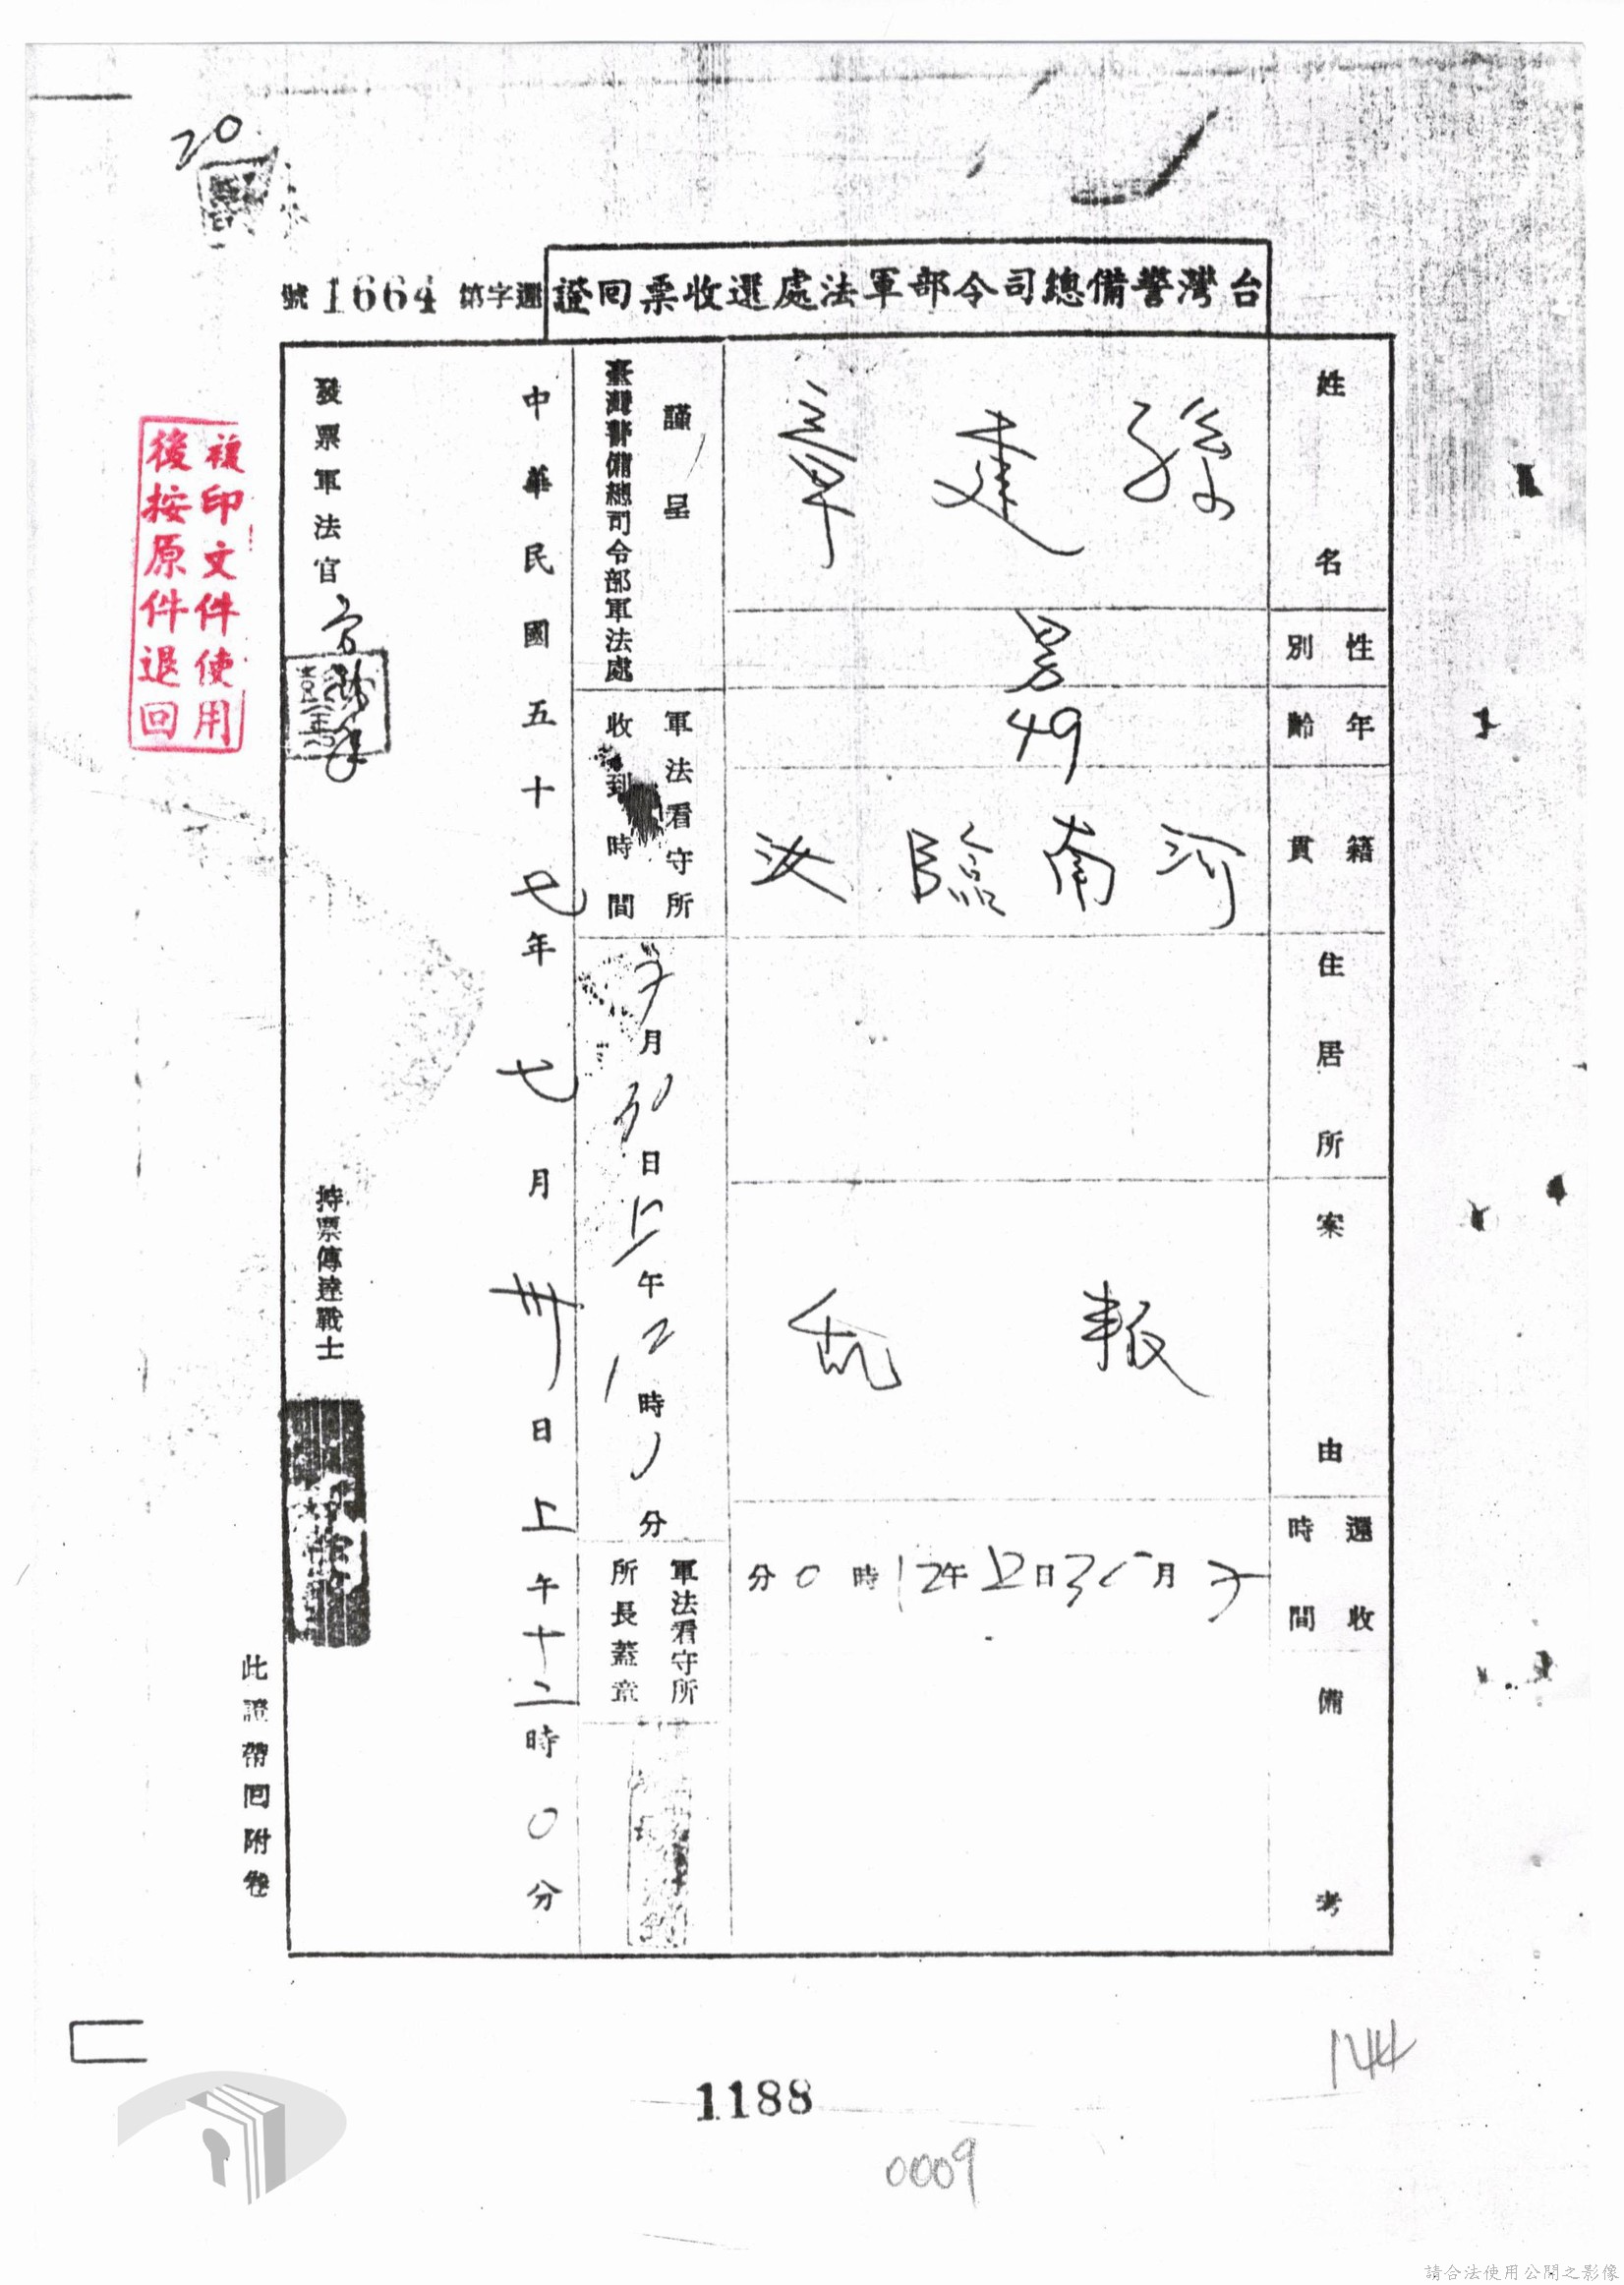 20
台灣警備總司令部軍法處還收票回證
還字第1664號
姓名
孫建章
性別
男
年齡
49
籍貫
河南臨汝
住居所
案由
叛乱
還收時間
7月30日上午12時0分
備考
謹呈
臺灣警備總司令部軍法處
軍法看守所
收到時間
7月30日上午12時分
軍法看守所
所長蓋章
中華民國五十七年七月卅日上午十二時0分
發票軍法官
持票傳達戰士
此證帶回附卷
複印文件使用
後按原件退回
144
1188
0009
請合法使用公開之影像